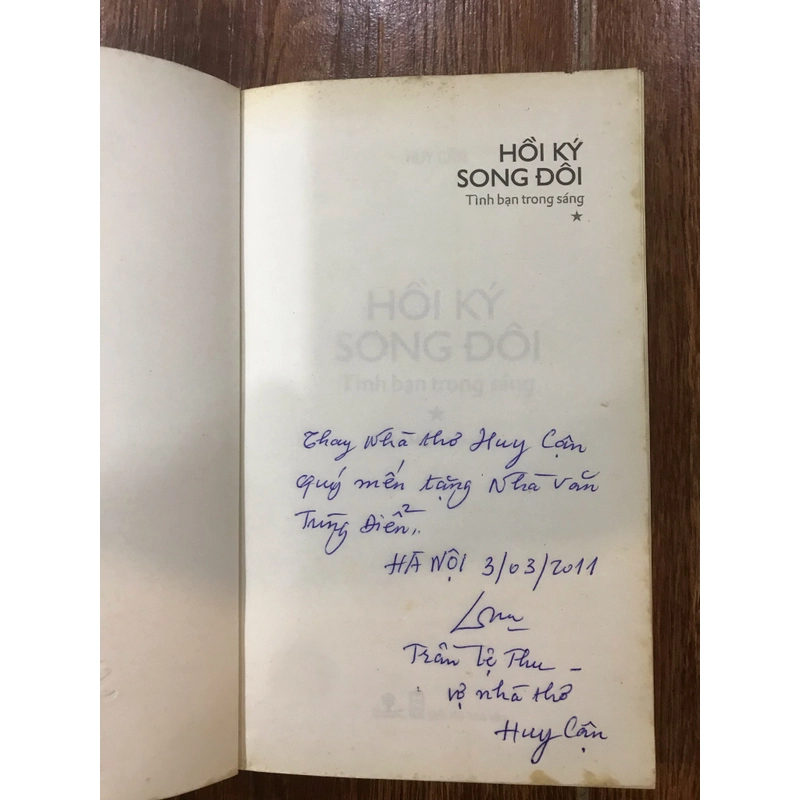 HUY CẬN
HỒI KÝ
SONG ĐÔI
Tình bạn trong sáng
HỒI KÝ
SONG ĐÔI
Tình bạn trong sáng
Thay Nhà thơ Huy Cận
quý mến tặng Nhà văn
Trung Điển,.
HÀ NỘI 3/03/2011
Trần Lệ Thu –
vợ nhà thơ
Huy Cận